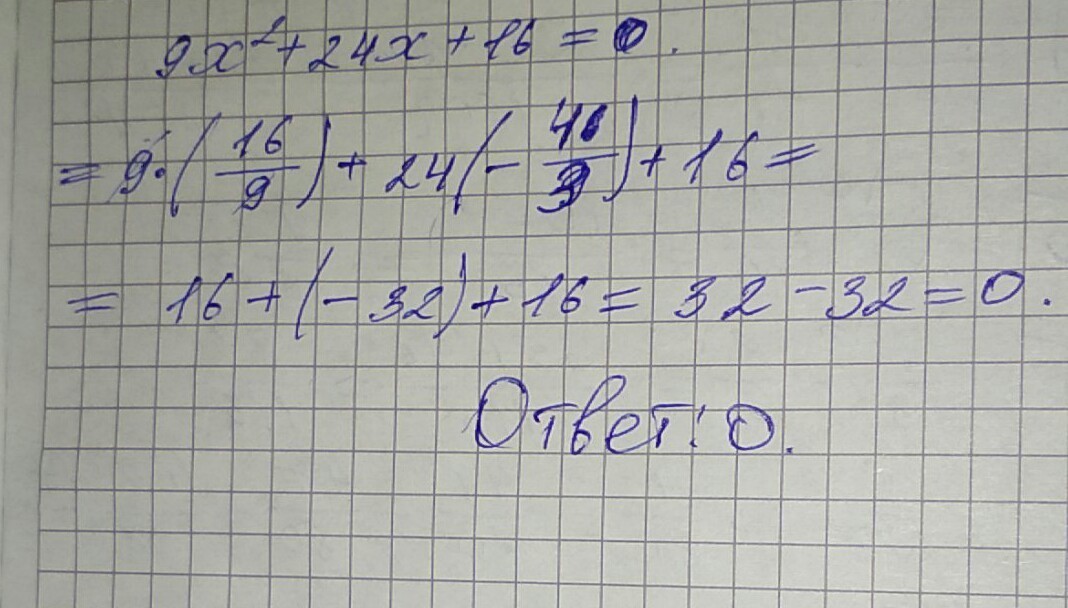 9x² + 24x + 16 = 0.
= 9·(16/9) + 24(-4/3) + 16 =
= 16 + (-32) + 16 = 32 - 32 = 0.
Ответ: 0.